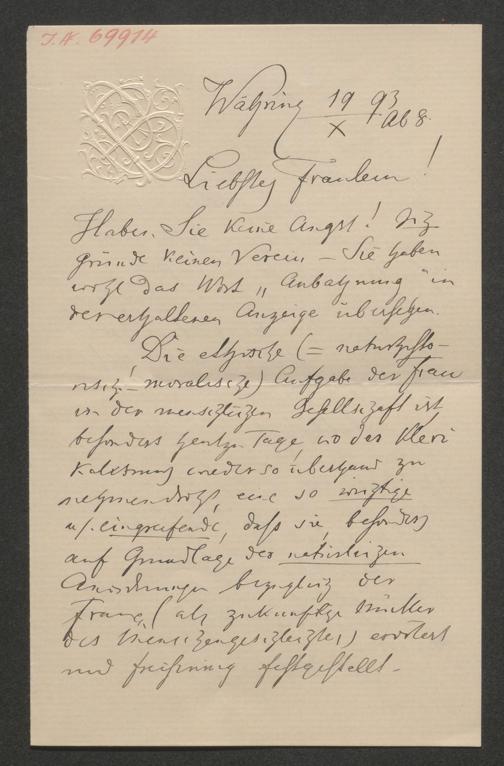 I.N. 69914
Währing 19/X 93
Ab 8.
Liebstes Fräulein!
Haben Sie keine Angst! Ich
gründe keinen Verein – Sie haben
wohl das Wort „Anbahnung" in
der erhaltenen Anzeige übersehen.
Die ethische (= naturhisto-
risch! moralische) Aufgabe der Frau
in der menschlichen Gesellschaft ist
besonders heutzu Tage, wo der Kleri
kalismus wieder so überhand zu
nehmen droht, eine so wichtige
u. eingreifende, daß sie, besonders
auf Grundlage der natürlichen
Anordnungen bezüglich der
Frau, (als zukünftige Mutter
des Menschengeschlechtes) erörtert
und freisinnig festgestellt